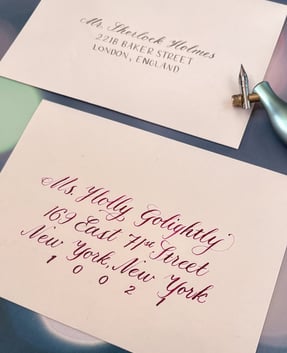 Mr. Sherlock Holmes
221B BAKER STREET
LONDON, ENGLAND
Ms. Holly Golightly
169 East 71st Street
New York, New York
1 0 0 2 1